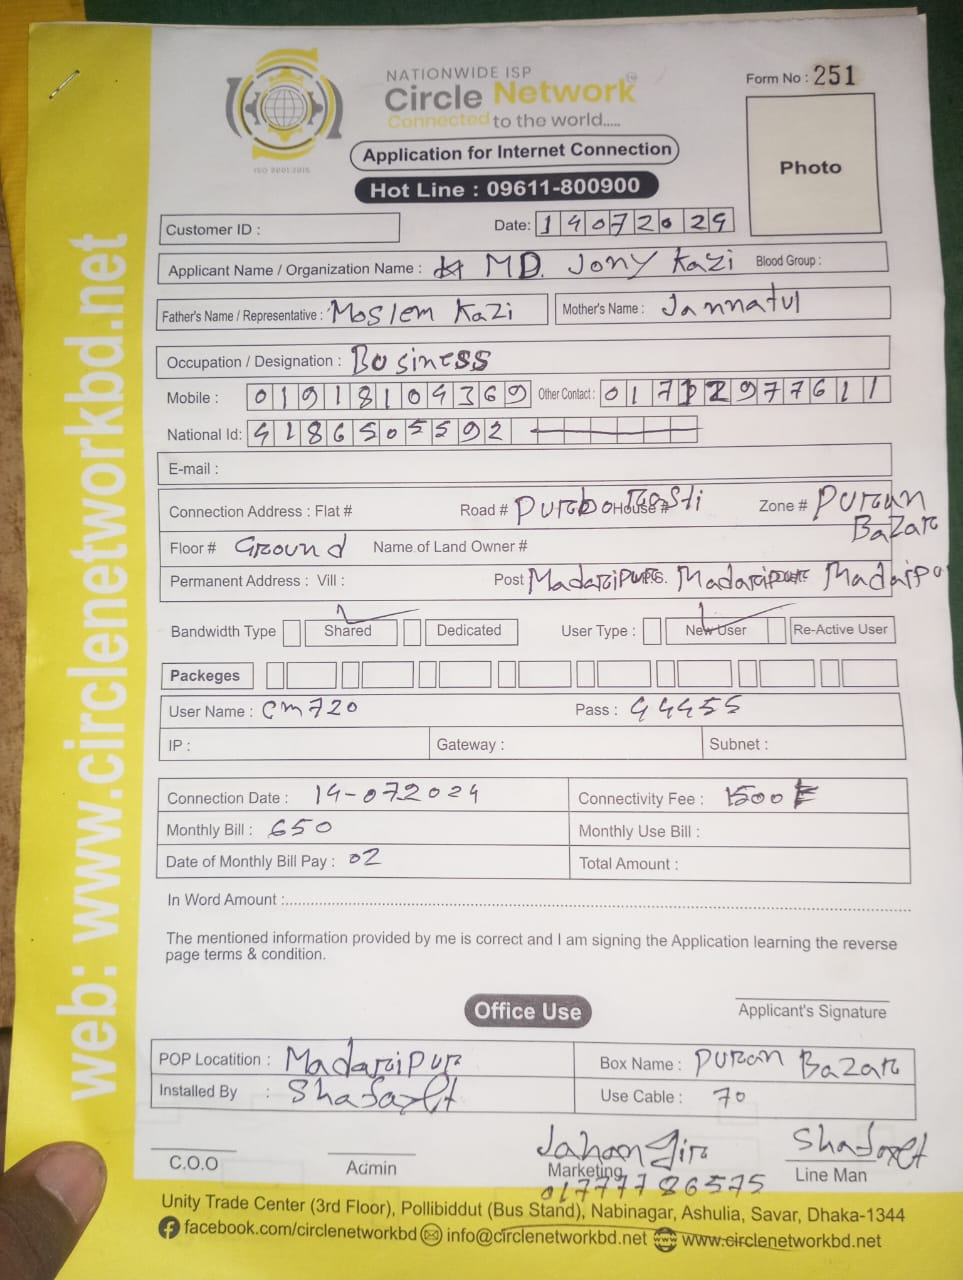 NATIONWIDE ISP
Circle Network
Connected to the world.....
ISO 9001:2015
Form No : 251
Photo
Application for Internet Connection
Hot Line : 09611-800900
web: www.circlenetworkbd.net
Customer ID :
Date: 14072024
Applicant Name / Organization Name : MD. Jony Kazi Blood Group :
Father's Name / Representative : Moslem Kazi Mother's Name : Jannatul
Occupation / Designation : Business
Mobile : 01918104369 Other Contact : 01712977611
National Id: 4186505592
E-mail :
Connection Address : Flat # Road # Purbo House # Zone # Puran Bazar
Floor # Ground Name of Land Owner #
Permanent Address : Vill : Post Madaripur Madaripur Madaripu
Bandwidth Type Shared Dedicated User Type : New User Re-Active User
Packeges
User Name : cm720 Pass : 44455
IP : Gateway : Subnet :
Connection Date : 14-072024 Connectivity Fee : 1500
Monthly Bill : 650 Monthly Use Bill :
Date of Monthly Bill Pay : 02 Total Amount :
In Word Amount :
The mentioned information provided by me is correct and I am signing the Application learning the reverse
page terms & condition.
Office Use
Applicant's Signature
POP Locatition : Madaripur Box Name : Puran Bazar
Installed By : Use Cable : 70
C.O.O Admin Jahangir Marketing Line Man
01777786575
Unity Trade Center (3rd Floor), Pollibiddut (Bus Stand), Nabinagar, Ashulia, Savar, Dhaka-1344
facebook.com/circlenetworkbd info@circlenetworkbd.net www.circlenetworkbd.net